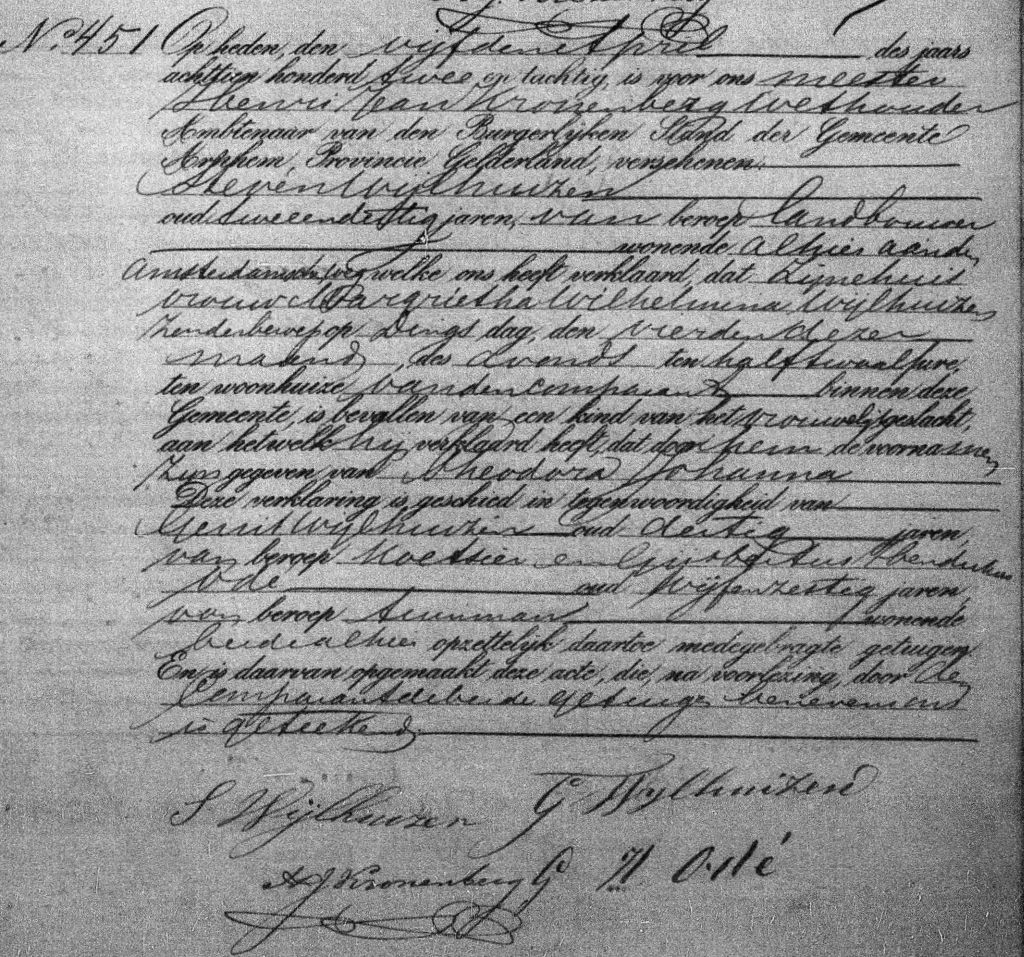 No. 451 Op heden, den vijfden April des jaars
achttien honderd twee en tachtig, is voor ons meester
Henri Jean Kronenberg Wethouder
Ambtenaar van den Burgerlijken Stand der Gemeente
Arnhem, Provincie Gelderland, verschenen:
Steven Wijlhuizen
oud tweeendertig jaren, van beroep landbouwer
wonende alhier aan den
Amsterdamscheweg welke ons heeft verklaard, dat zijne huis
vrouw Margrietha Wilhelmina Wijlhuizen
zonder beroep op Dings dag, den vierden dezer
maand, des avonds ten half twaalf ure,
ten woonhuize van den comparant binnen deze
Gemeente, is bevallen van een kind van het vrouwelijk geslacht,
aan hetwelk hij verklaard heeft, dat door hem de voornamen
zijn gegeven van Theodora Johanna
Deze verklaring is geschied in tegenwoordigheid van
Gerrit Wijlhuizen oud dertig jaren,
van beroep koetsier en Gijsbertus Hendrikus
Odé oud vijfenzestig jaren
van beroep tuinman wonende
beide alhier opzettelijk daartoe medegebragte getuigen
En is daarvan opgemaakt deze acte, die, na voorlezing, door de
Comparant de beide getuigen benevens ons
is geteekend
S Wijlhuizen G Wijlhuizen
H J Kronenberg G H Odé